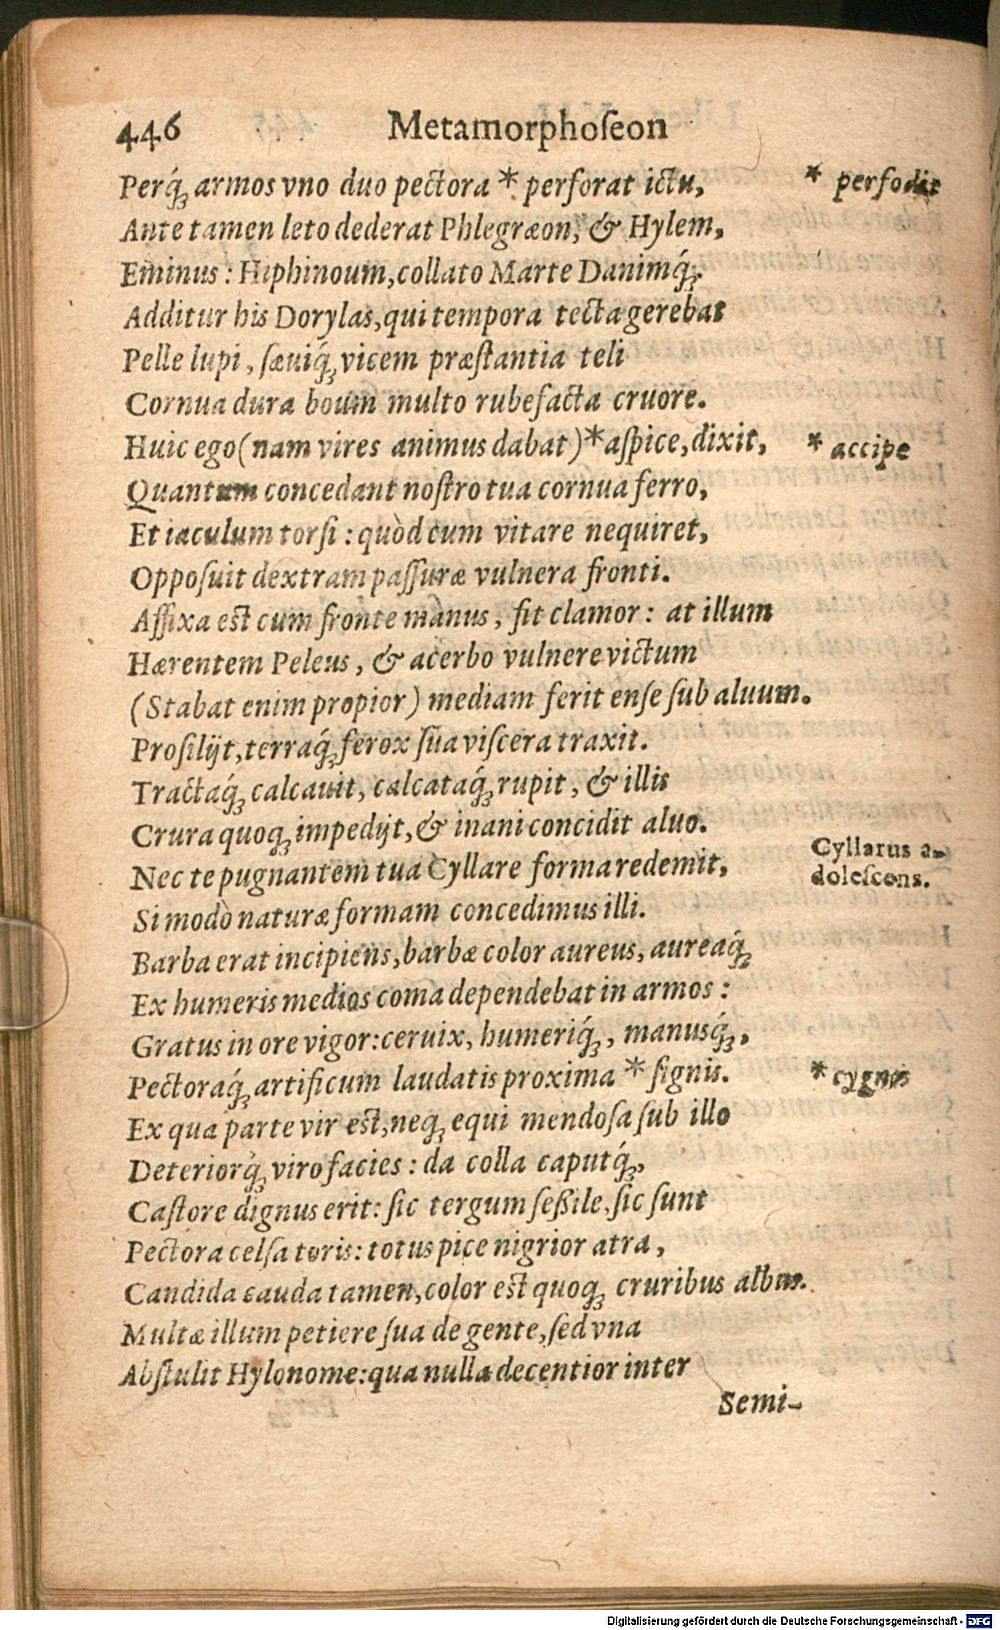 446 Metamorphoſeon
Perq́ꝫ armos vno duo pectora * perforat ictu, * perfodit
Ante tamen leto dederat Phlegræon, & Hylem,
Eminus: Hiphinoum, collato Marte Danimq́ꝫ.
Additur his Dorylas, qui tempora tecta gerebat
Pelle lupi, ſæuiq́ꝫ vicem præſtantia teli
Cornua dura boum multo rubefacta cruore.
Huic ego (nam vires animus dabat) * aſpice, dixit, * accipe
Quantum concedant noſtro tua cornua ferro,
Et iaculum torſi: quòd cum vitare nequiret,
Oppoſuit dextram paſſuræ vulnera fronti.
Affixa est cum fronte manus, fit clamor: at illum
Hærentem Peleus, & acerbo vulnere victum
(Stabat enim propior) mediam ferit enſe ſub aluum.
Proſilijt, terraq́ꝫ ferox ſua viſcera traxit.
Tractaq́ꝫ calcauit, calcataq́ꝫ rupit, & illis
Crura quoqꝫ impedijt, & inani concidit aluo.
Nec te pugnantem tua Cyllare forma redemit, Cyllarus a-
doleſcens.
Si modò naturæ formam concedimus illi.
Barba erat incipiens, barbæ color aureus, aureaq́ꝫ
Ex humeris medios coma dependebat in armos:
Gratus in ore vigor: ceruix, humeriq́ꝫ, manusq́ꝫ,
Pectoraq́ꝫ artificum laudatis proxima * ſignis. * cygnis
Ex qua parte vir est, neqꝫ equi mendoſa ſub illo
Deteriorq́ꝫ viro facies: da colla caputq́ꝫ,
Caſtore dignus erit: ſic tergum ſeßile, ſic ſunt
Pectora celſa toris: totus pice nigrior atra,
Candida cauda tamen, color est quoqꝫ cruribus albus.
Multæ illum petiere ſua de gente, ſed vna
Abſtulit Hylonome: qua nulla decentior inter
Semi-
Digitalisierung gefördert durch die Deutsche Forschungsgemeinschaft - DFG